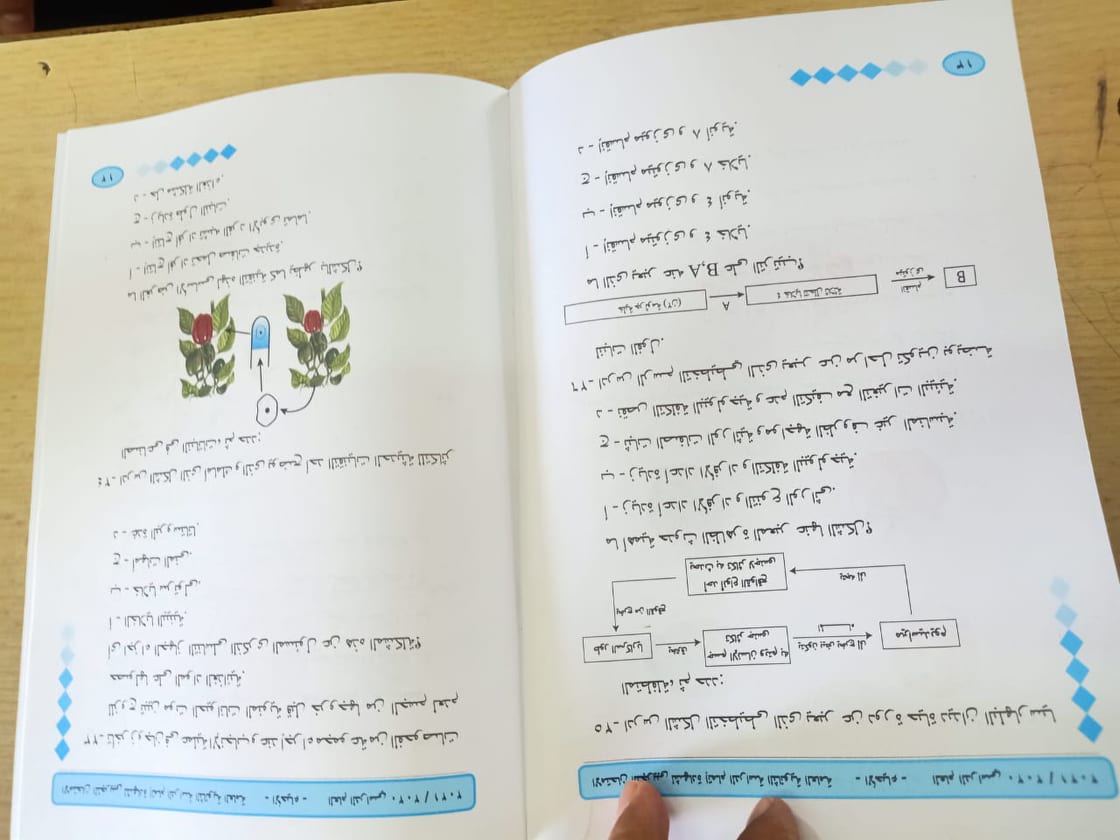 الامتحان التجريبى لشهادة إتمام الدراسة الثانوية العامة - الأحياء - العام الدراسي ٢٠٢٠ / ٢٠٢١
٢٣- تأخر زوجان فى عملية الإنجاب وعند إجراء مجموعة من الفحوصات
للزوج تبين موت الحيوانات المنوية قبل خروجها من الجسم لعدم
حصولها على المواد الغذائية.
أى اجزاء الجهاز التناسلى الذكرى المسئول عن هذه المشكلة؟
أ - الخلايا البينية.
ب - خلايا سرتولى.
ج - أمهات المنى.
د - غدة البروستاتا.
٢٤- ادرس الشكل الذى أمامك والذى يوضح أحد التقنيات الحديثة للتكاثر
الصناعى فى النباتات، ثم حدد:
ما الغرض الأساسى لهذه التقنية كما يظهر بالشكل؟
أ - إنتاج أفراد تحمل صفات جديدة.
ب - إنتاج أفراد تشبه الفرد الأبوى تماما.
ج - زيادة طول النبات.
د - حل مشكلة الغذاء.
١٢
الامتحان التجريبى لشهادة إتمام الدراسة الثانوية العامة - الأحياء - العام الدراسي ٢٠٢٠ / ٢٠٢١
٢٥- ادرس الشكل التخطيطى الذى يعبر عن دورة حياة ديدان البلهارسيا
المتطفلة، ثم حدد:
طور السركاريا
يخترق
جسم الإنسان ويتم به
تكاثر جنسى
يتكون بيض يخرج إلى
المـــاء
ميراسيديوم
يخرج من القوقع
أحد أنواع القواقع
يحدث به تكاثر لاجنسى
يتجه إلى
ما أهمية حدوث الظاهرة المعبر عنها الشكل؟
أ - زيادة أعداد الأفراد والتنوع الوراثى.
ب - زيادة أعداد الأفراد والتكلفة البيولوجية.
ج - ثبات الصفات الوراثية ومواجهة الظروف غير المناسبة.
د - نقص التكلفة البيولوجية وعدم التكيف مع التغيرات البيئية.
٢٦- ادرس الرسم التخطيطي الذى يعبر عن مراحل تكوين بويضة
لنبات الفول.
خلية جرثومة (٢ن)
A
٤ خلايا تتحلل ثلاثة
انقسام
ميتوزى
B
ما الذى يعبر عنه B,A على الترتيب؟
أ - إنقسام ميتوزى و ٤ خلايا.
ب - إنقسام ميوزى و ٤ أنوية.
ج - إنقسام ميتوزى و ٨ خلايا.
د - إنقسام ميوزى و ٨ أنوية.
١٣